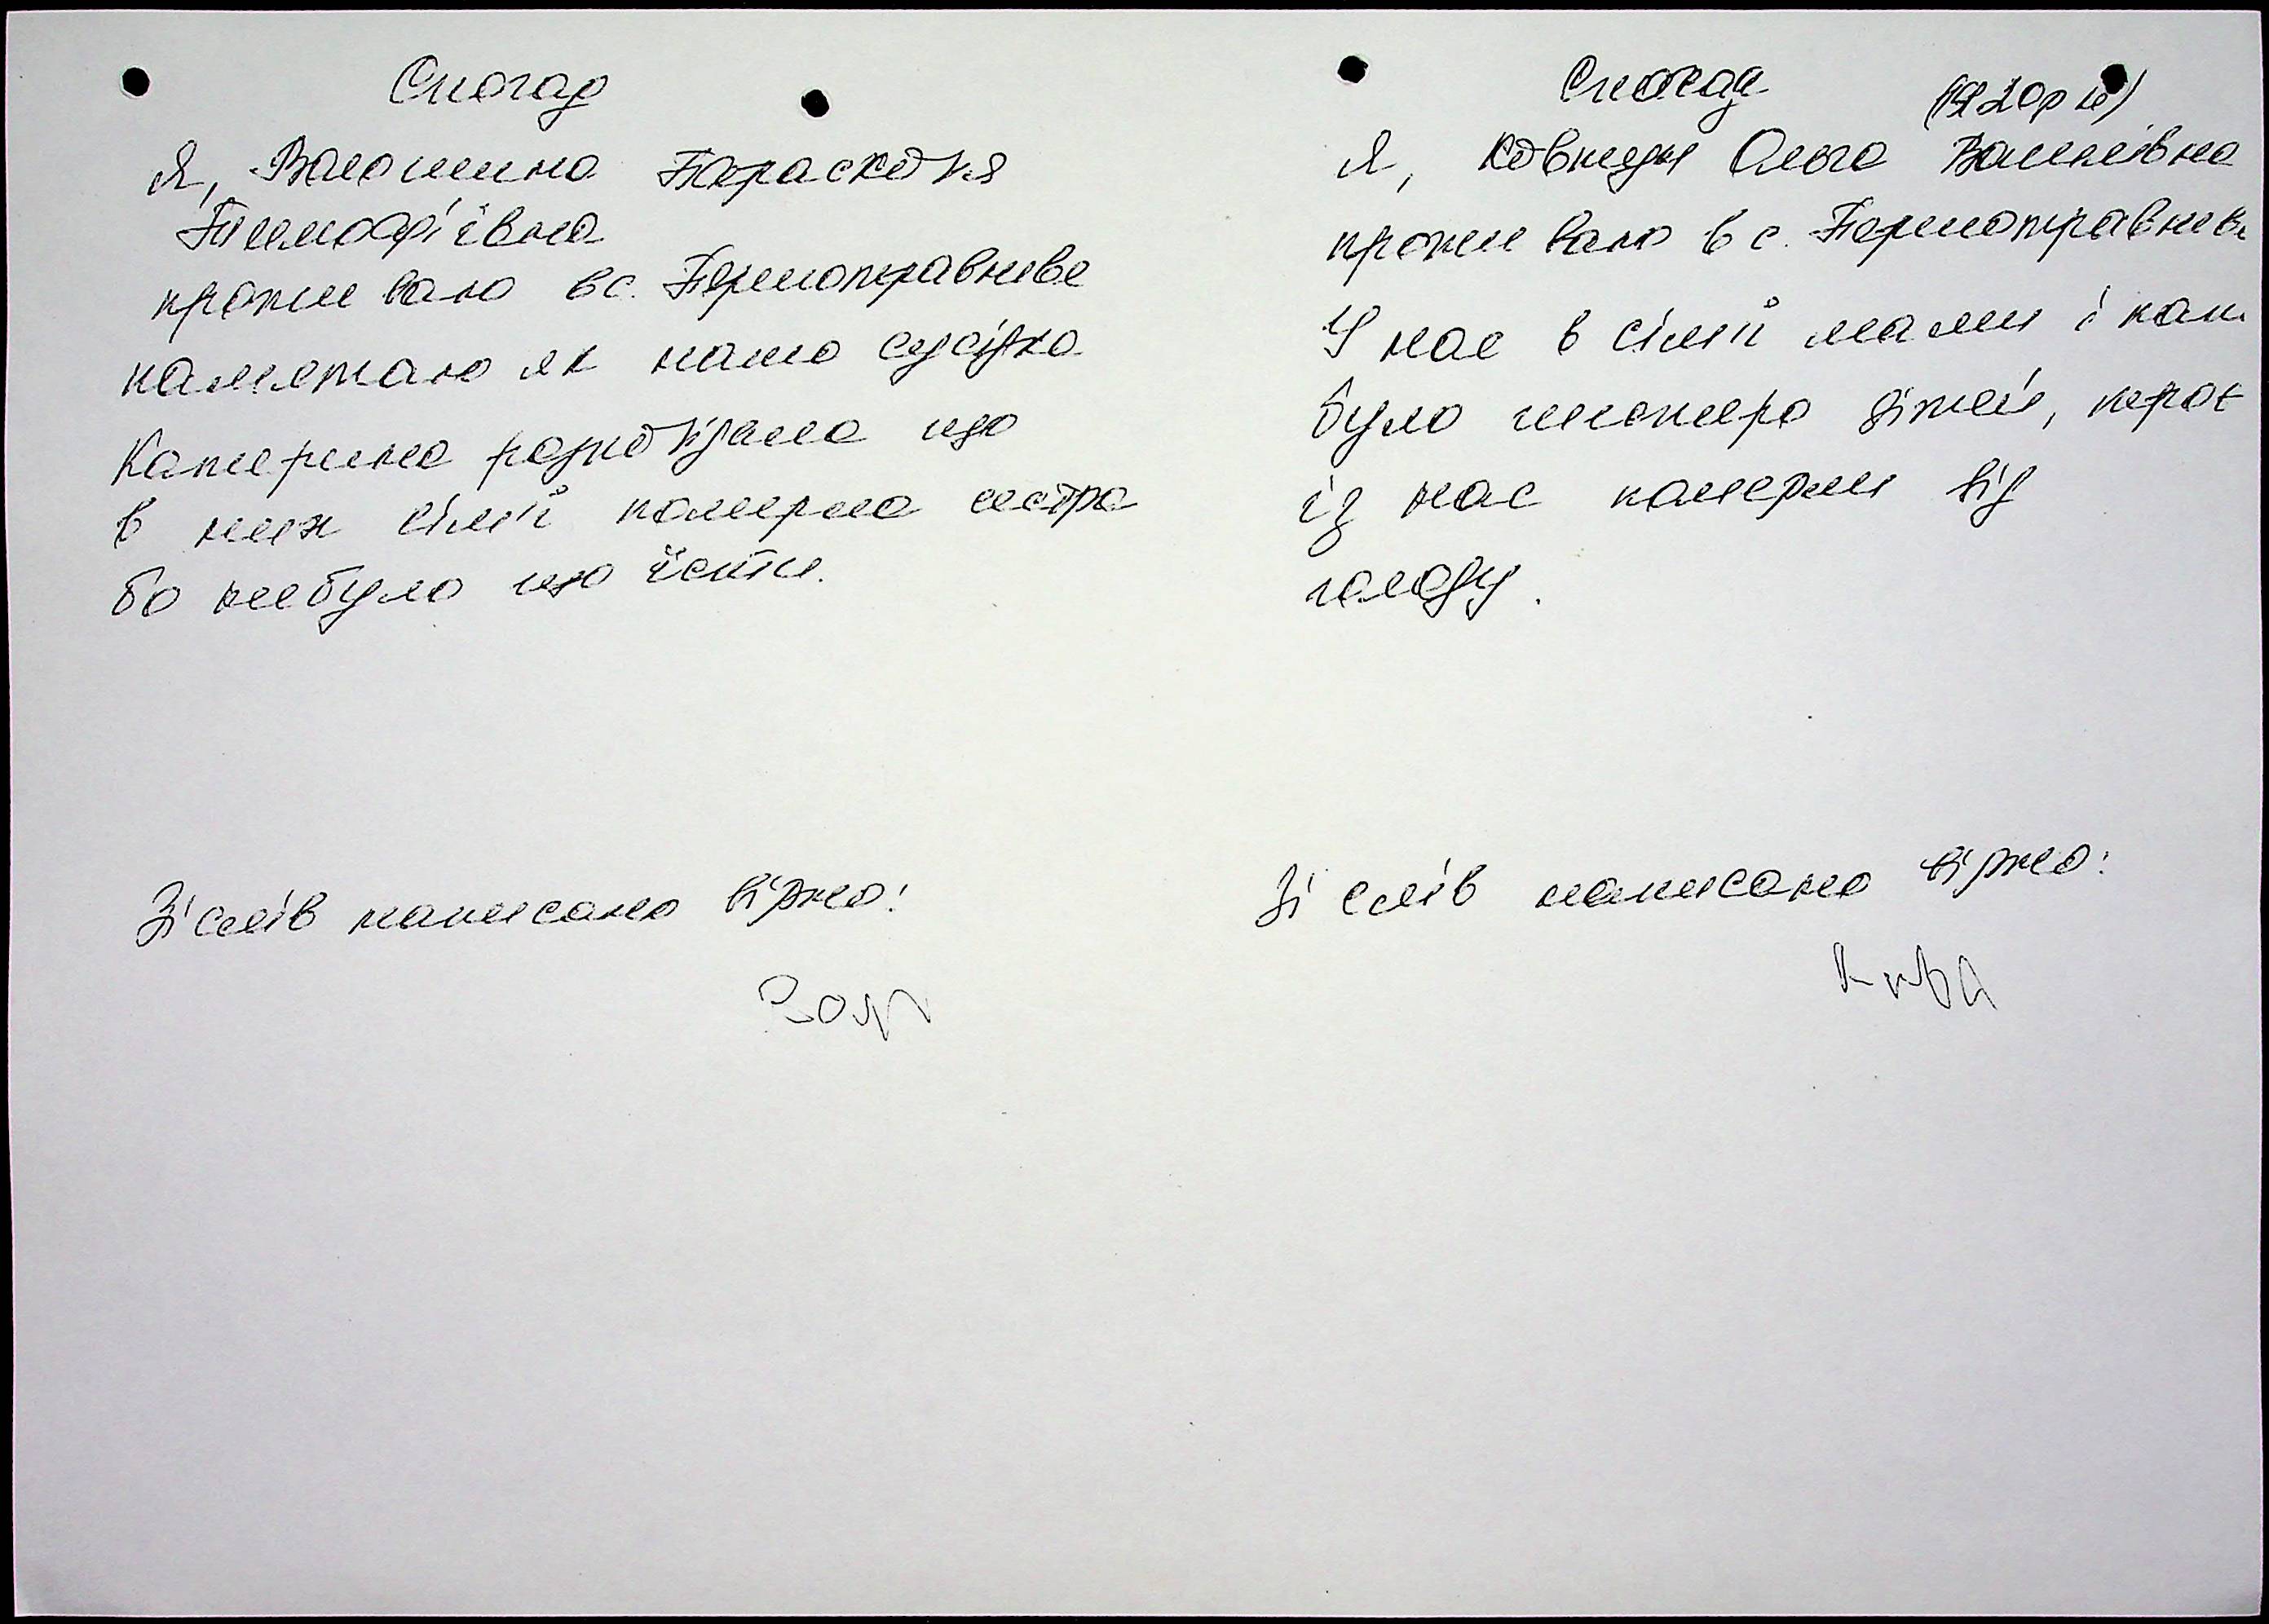 Спогад
Я, Волошина Парасковія
Тимофіївна
проживаю в с. Пермотравневе
памятаю як наша сусідка
Катерина розповідала що
в них сімї померла сестра
бо небуло що їсти.
Зі слів написано вірно:
Спогад
(1920р н)
Я, Ковпедя Ольга Василівна
проживаю в с. Пермотравнев
У нас в сімї мами і
було шестеро дітей,
із нас померли від
голоду.
Зі слів написано вірно: